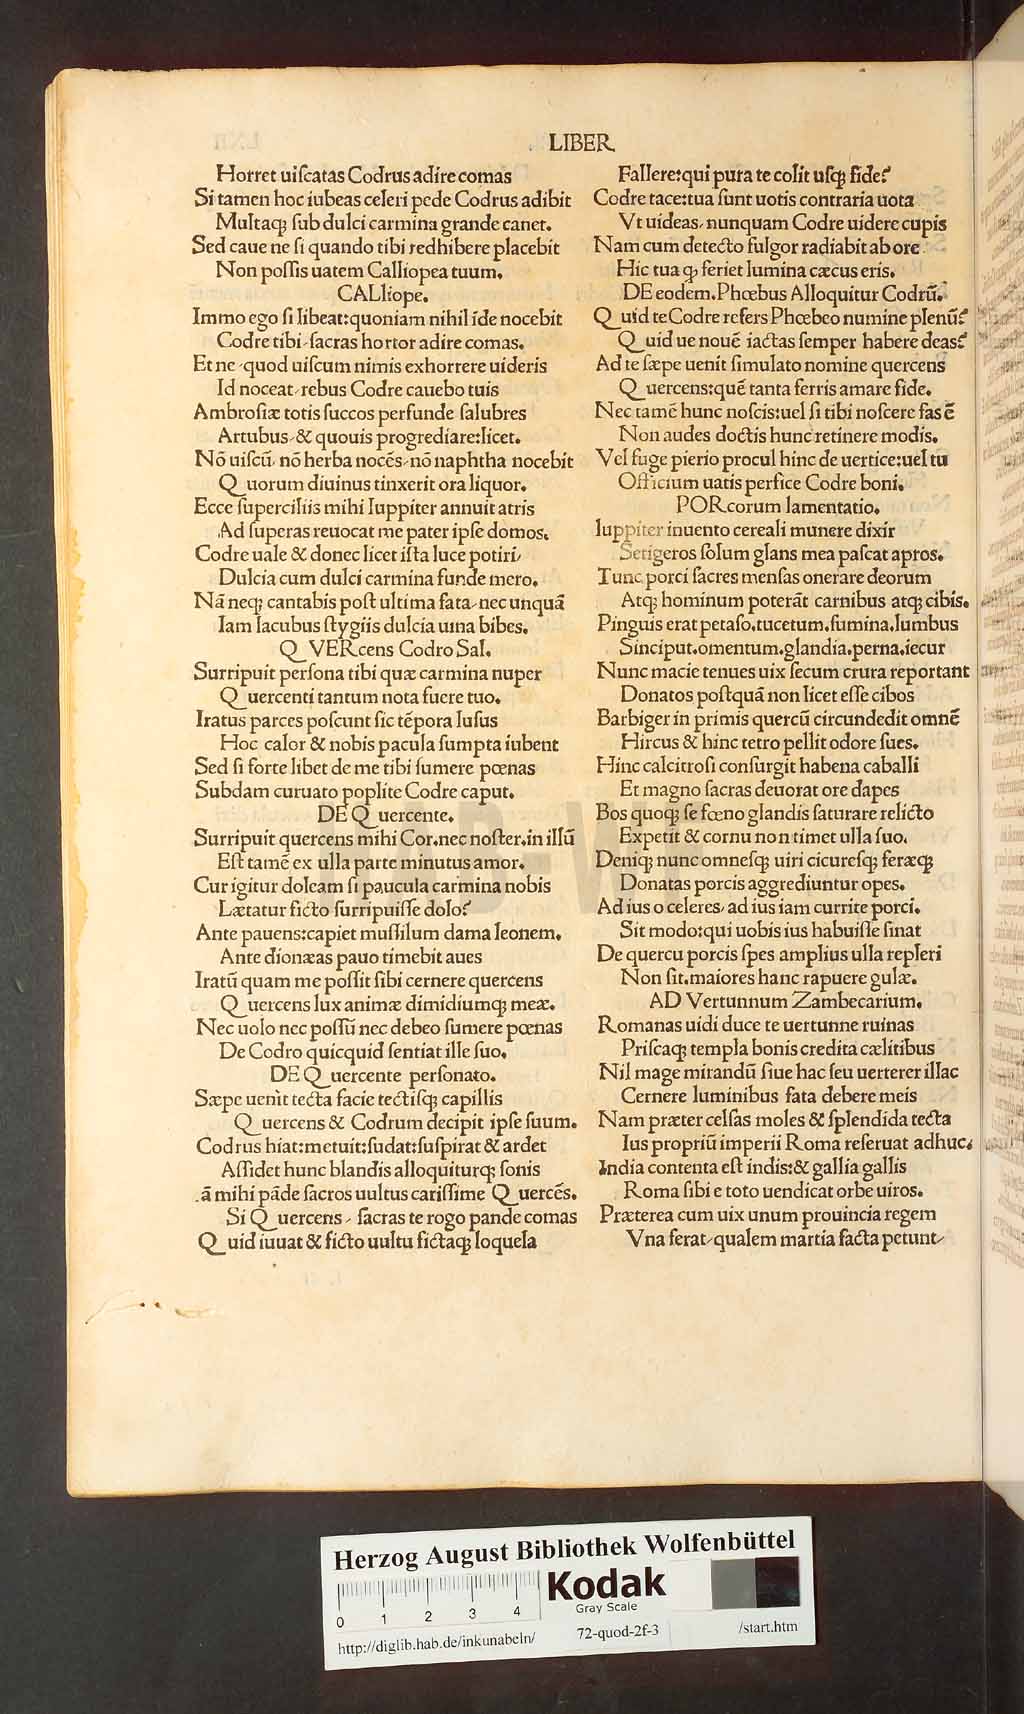 LIBER
Horret uiſcatas Codrus adire comas
Si tamen hoc iubeas celeri pede Codrus adibit
Multaqꝫ ſub dulci carmina grande canet.
Sed caue ne ſi quando tibi redhibere placebit
Non poſſis uatem Calliopea tuum.
CALliope.
Immo ego ſi libeat:quoniam nihil īde nocebit
Codre tibi⸝ſacras hortor adire comas.
Et ne⸝quod uiſcum nimis exhorrere uideris
Id noceat⸝rebus Codre cauebo tuis
Ambroſiæ totis ſuccos perfunde ſalubres
Artubus⸝& quouis progrediare:licet.
Nō uiſcū⸝nō herba nocēs⸝nō naphtha nocebit
Quorum diuinus tinxerit ora liquor.
Ecce ſuperciliis mihi Iuppiter annuit atris
Ad ſuperas reuocat me pater ipſe domos.
Codre uale & donec licet iſta luce potiri⸝
Dulcia cum dulci carmina funde mero.
Nā neqꝫ cantabis poſt ultima fata⸝nec unquā
Iam Iacubus ſtygiis dulcia uina bibes.
QVERcens Codro Sal.
Surripuit perſona tibi quæ carmina nuper
Quercenti tantum nota fuere tuo.
Iratus parces poſcunt ſic tēpora luſus
Hoc calor & nobis pacula ſumpta iubent
Sed ſi forte libet de me tibi ſumere pœnas
Subdam curuato poplite Codre caput.
DE Quercente.
Surripuit quercens mihi Cor.nec noſter.in illū
Eſt tamē ex ulla parte minutus amor.
Cur igitur doleam ſi paucula carmina nobis
Lætatur ficto ſurripuiſſe dolo?
Ante pauens:capiet muſſilum dama leonem.
Ante dionæas pauo timebit aues
Iratū quam me poſſit ſibi cernere quercens
Quercens lux animæ dimidiumqꝫ meæ.
Nec uolo nec poſſū nec debeo ſumere pœnas
De Codro quicquid ſentiat ille ſuo.
DE Quercente perſonato.
Sæpe uenit tecta facie tectiſqꝫ capillis
Quercens & Codrum decipit ipſe ſuum.
Codrus hiat:metuit:ſudat:ſuſpirat & ardet
Aſſidet hunc blandis alloquiturqꝫ ſonis
.ā mihi pāde ſacros uultus cariſſime Quercēs.
Si Quercens⸝ ſacras te rogo pande comas
Quid iuuat & ficto uultu fictaqꝫ loquela
Fallere:qui pura te colit uſqꝫ fide?
Codre tace:tua ſunt uotis contraria uota
Vt uideas⸝nunquam Codre uidere cupis
Nam cum detecto fulgor radiabit ab ore
Hic tua qꝫ feriet lumina cæcus eris.
DE eodem.Phœbus Alloquitur Codrū.
Quid te Codre refers Phœbeo numine plenū?
Quid ue nouē iactas ſemper habere deas?
Ad te ſæpe uenit ſimulato nomine quercens
Quercens:quē tanta ferris amare fide.
Nec tamē hunc noſcis:uel ſi tibi noſcere fas ē
Non audes doctis hunc retinere modis.
Vel fuge pierio procul hinc de uertice:uel tu
Officium uatis perfice Codre boni.
PORcorum lamentatio.
Iuppiter inuento cereali munere dixit
Setigeros ſolum glans mea paſcat apros.
Tunc porci ſacres menſas onerare deorum
Atqꝫ hominum poterāt carnibus atqꝫ cibis.
Pinguis erat petaſo.tucetum.ſumina.lumbus
Sinciput.omentum.glandia.perna.iecur
Nunc macie tenues uix ſecum crura reportant
Donatos poſtquā non licet eſſe cibos
Barbiger in primis quercū circundedit omnē
Hircus & hinc tetro pellit odore ſues.
Hinc calcitroſi conſurgit habena caballi
Et magno ſacras deuorat ore dapes
Bos quoqꝫ ſe fœno glandis ſaturare relicto
Expetit & cornu non timet ulla ſuo.
Deniqꝫ nunc omneſqꝫ uiri cicureſqꝫ feræqꝫ
Donatas porcis aggrediuntur opes.
Ad ius o celeres⸝ad ius iam currite porci.
Sit modo:qui uobis ius habuiſſe ſinat
De quercu porcis ſpes amplius ulla repleri
Non ſit.maiores hanc rapuere gulæ.
AD Vertunnum Zambecarium.
Romanas uidi duce te uertunne ruinas
Priſcaqꝫ templa bonis credita cælitibus
Nil mage mirandū ſiue hac ſeu uerterer illac
Cernere luminibus fata debere meis
Nam præter celſas moles & ſplendida tecta
Ius propriū imperii Roma reſeruat adhuc.
India contenta eſt indis:& gallia gallis
Roma ſibi e toto uendicat orbe uiros.
Præterea cum uix unum prouincia regem
Vna ferat⸝qualem martia facta petunt⸝
HAB-W
Herzog August Bibliothek Wolfenbüttel
0 1 2 3 4
Kodak
Gray Scale
http://diglib.hab.de/inkunabeln/ 72-quod-2f-3 /start.htm